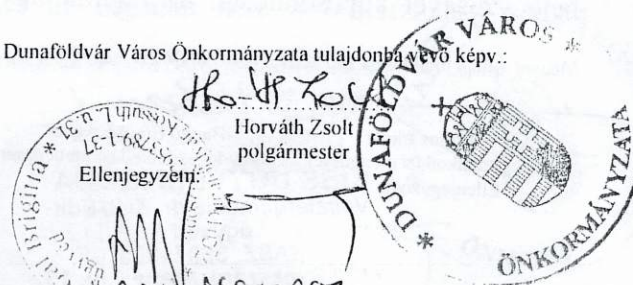 Dunaföldvár Város Önkormányzata tulajdonba vevő képv.:
Horváth Zsolt
polgármester
Ellenjegyzem:
* DUNAFÖLDVÁR VÁROS *
ÖNKORMÁNYZATA
Brigitta * Kossuth L. u. 31.
ügyvéd